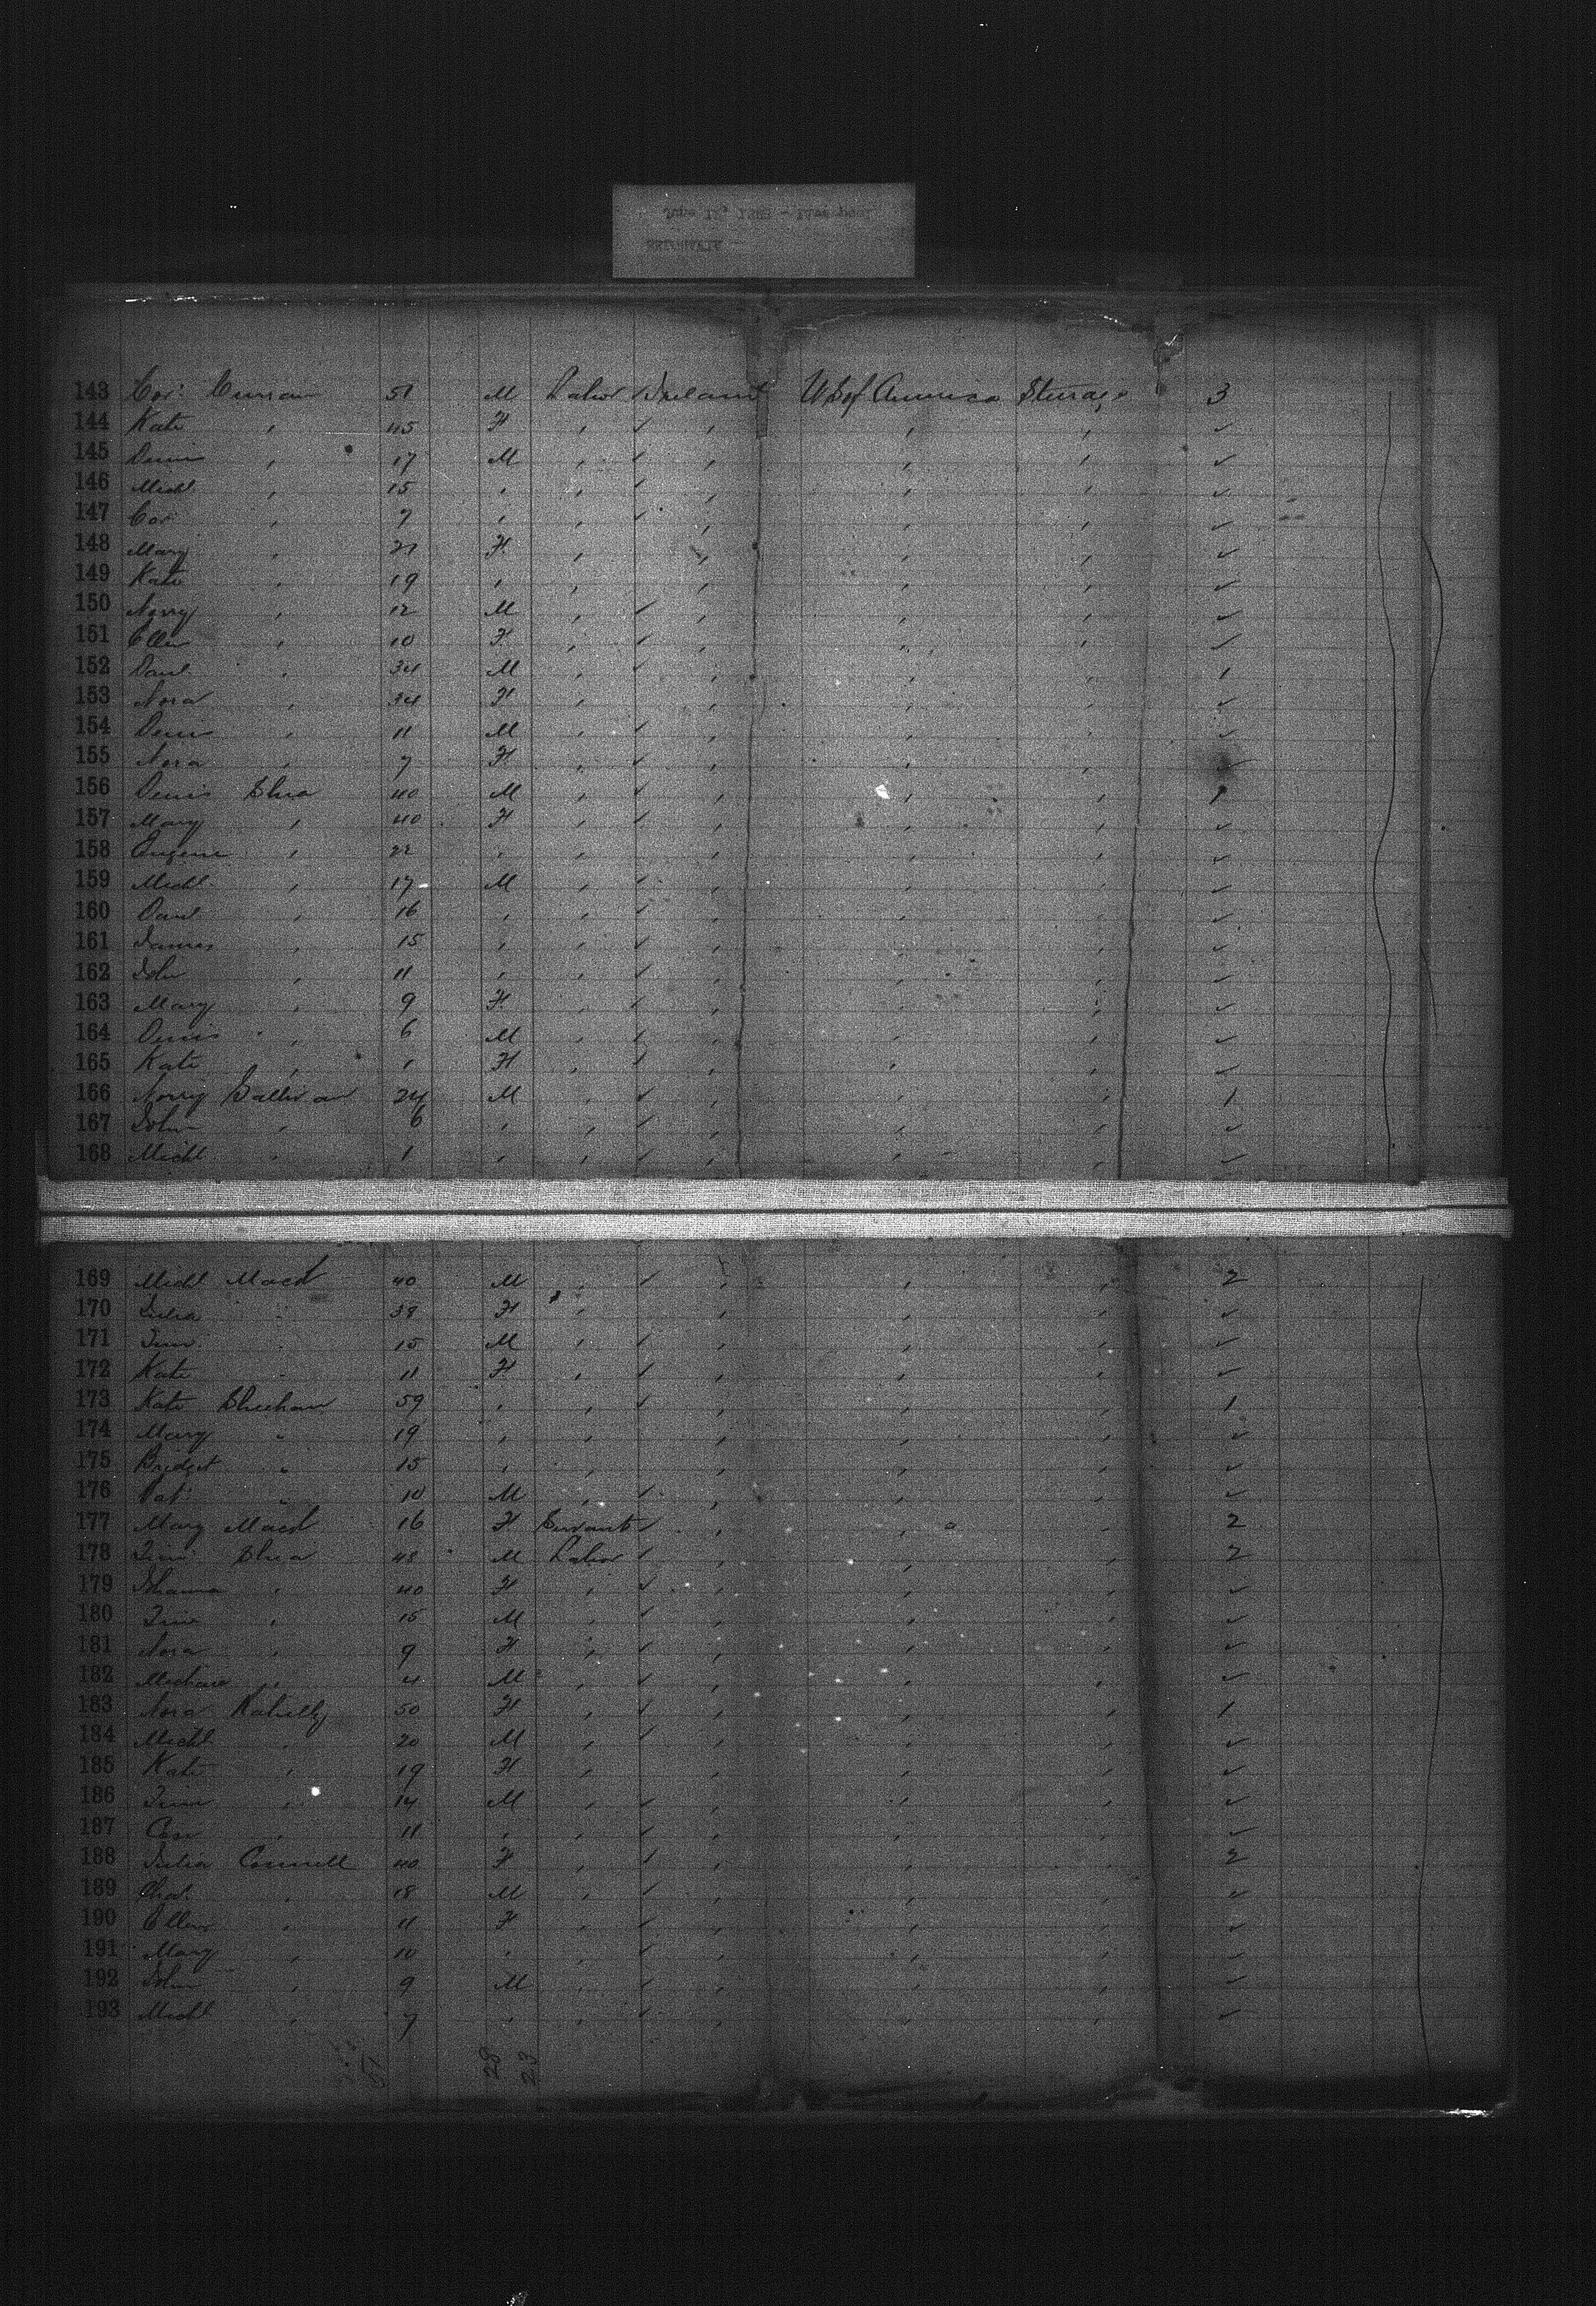 143 Cor: Curran 51 M Labor Ireland U S of America Steerage 3
144 Kate " 45 F " " " " "
145 Denis " 17 M " " " "
146 Michl " 15 " " " " "
147 Cor " 7 " " " " "
148 Mary " 21 F " " " "
149 Kate " 19 " " " " "
150 Norry " 12 M " " " "
151 Ellen " 10 F " " " "
152 Danl " 34 M " " " " 1
153 Nora " 34 F " " " "
154 Denis " 11 M " " " "
155 Nora " 7 F " " " "
156 Denis Shea 40 M " " " " 1
157 Mary " 40 F " " " "
158 Eugene " 22 " " " " "
159 Michl " 17 M " " " "
160 Danl " 16 " " " " "
161 James " 15 " " " " "
162 John " 11 " " " " "
163 Mary " 9 F " " " "
164 Denis " 6 M " " " "
165 Kate " 1 F " " " "
166 Norry Sullivan 24 M " " " " 1
167 John " 6 " " " " "
168 Michl " 1 " " " " "
169 Michl 40 M " " " " 2
170 Julia " 38 F " " " "
171 Tim " 15 M " " " "
172 Kate " 11 F " " " "
173 Kate Sheehan 59 " " " " " 1
174 Mary " 19 " " " " "
175 Bridget " 15 " " " " "
176 Pat " 10 M " " " "
177 Mary 16 F Servant " " " 2
178 Tim Shea 48 M Labor " " " 2
179 " 40 F " " " "
180 Tim " 15 M " " " "
181 Nora " 9 F " " " "
182 " 4 M " " " "
183 Nora Rahilly 50 F " " " " 1
184 Michl " 20 M " " " "
185 Kate " 19 F " " " "
186 Tim " 14 M " " " "
187 Con " 11 " " " " "
188 Julia Connell 40 F " " " " 2
189 " 18 M " " " "
190 Ellen " 11 F " " " "
191 Mary " 10 " " " " "
192 John " 9 M " " " "
193 Michl " 7 " " " " "
51 28 23